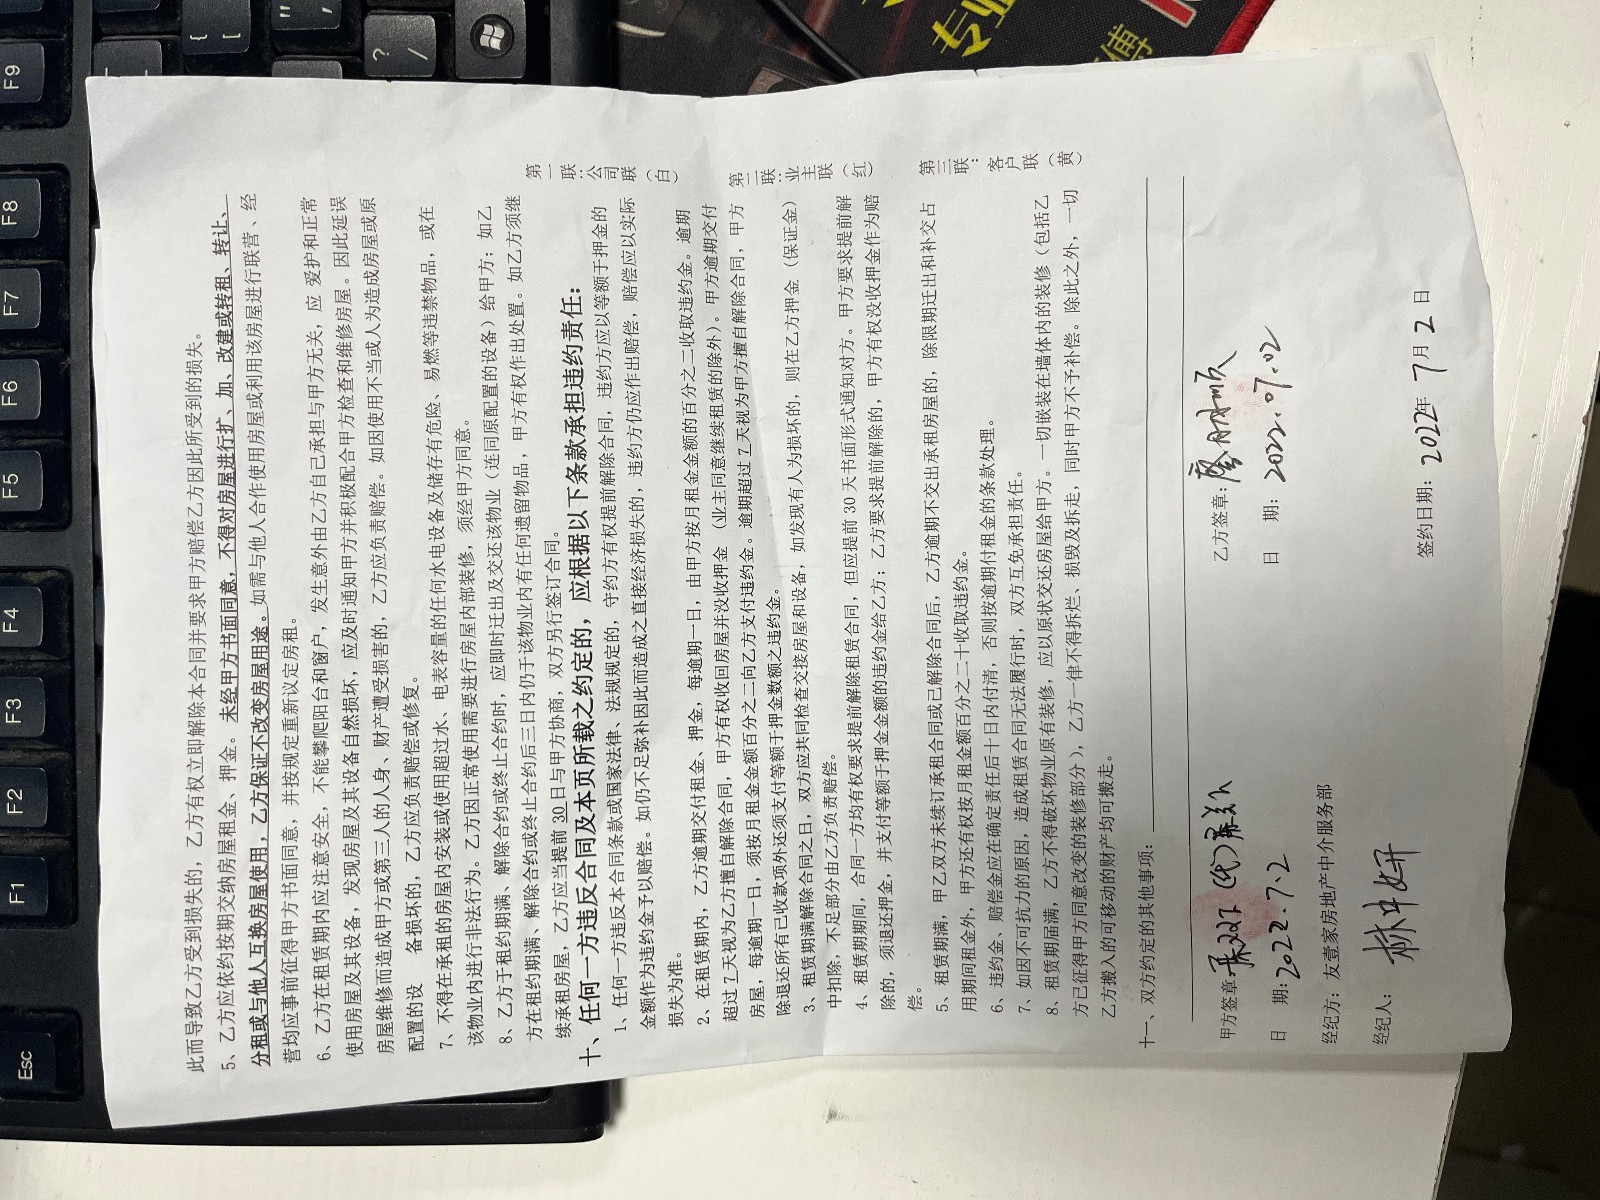 此而导致乙方受到损失的，乙方有权立即解除本合同并要求甲方赔偿乙方因此所受到的损失。
5、乙方应依约按期交纳房屋租金、押金。未经甲方书面同意，不得对房屋进行扩、加、改建或转租、转让、
分租或与他人互换房屋使用，乙方保证不改变房屋用途。如需与他人合作使用房屋或利用该房屋进行联营、经
营均应事前征得甲方书面同意，并按规定重新议定房租。
6、乙方在租赁期内应注意安全，不能攀爬阳台和窗户，发生意外由乙方自己承担与甲方无关，应 爱护和正常
使用房屋及其设备，发现房屋及其设备自然损坏，应及时通知甲方并积极配合甲方检查和维修房屋。因此延误
房屋维修而造成甲方或第三人的人身、财产遭受损害的，乙方应负责赔偿。如因使用不当或人为造成房屋或原
配置的设 备损坏的，乙方应负责赔偿或修复。
7、不得在承租的房屋内安装或使用超过水、电表容量的任何水电设备及储存有危险、易燃等违禁物品，或在
该物业内进行非法行为。乙方因正常使用需要进行房屋内部装修，须经甲方同意。
8、乙方于租约期满、解除合约或终止合约时，应即时迁出及交还该物业（连同原配置的设备）给甲方；如乙
方在租约期满、解除合约或终止合约后三日内仍于该物业内有任何遗留物品，甲方有权作出处置。如乙方须继
续承租房屋，乙方应当提前 30 日与甲方协商，双方另行签订合同。
十、任何一方违反合同及本页所载之约定的，应根据以下条款承担违约责任：
1、任何一方违反本合同条款或国家法律、法规规定的，守约方有权提前解除合同，违约方应以等额于押金的
金额作为违约金予以赔偿。如仍不足弥补因此而造成之直接经济损失的，违约方仍应作出赔偿，赔偿应以实际
损失为准。
2、在租赁期内，乙方逾期交付租金、押金，每逾期一日，由甲方按月租金金额的百分之二收取违约金。逾期
超过 7 天视为乙方擅自解除合同，甲方有权收回房屋并没收押金（业主同意继续租赁的除外）。甲方逾期交付
房屋，每逾期一日，须按月租金金额百分之二向乙方支付违约金。逾期超过 7 天视为甲方擅自解除合同，甲方
除退还所有已收款项外还须支付等额于押金数额之违约金。
3、租赁期满解除合同之日，双方应共同检查交接房屋和设备，如发现有人为损坏的，则在乙方押金（保证金）
中扣除，不足部分由乙方负责赔偿。
4、租赁期期间，合同一方均有权要求提前解除租赁合同，但应提前 30 天书面形式通知对方。甲方要求提前解
除的，须退还押金，并支付等额于押金金额的违约金给乙方；乙方要求提前解除的，甲方有权没收押金作为赔
偿。
5、租赁期满，甲乙双方未续订承租合同或已解除合同后，乙方逾期不交出承租房屋的，除限期迁出和补交占
用期间租金外，甲方还有权按月租金额百分之二十收取违约金。
6、违约金、赔偿金应在确定责任后十日内付清，否则按逾期付租金的条款处理。
7、如因不可抗力的原因，造成租赁合同无法履行时，双方互免承担责任。
8、租赁期届满，乙方不得破坏物业原有装修，应以原状交还房屋给甲方。一切嵌装在墙体内的装修（包括乙
方已征得甲方同意改变的装修部分），乙方一律不得拆烂、损毁及拆走，同时甲方不予补偿。除此之外，一切
乙方搬入的可移动的财产均可搬走。
十一、双方约定的其他事项：
甲方签章： （代） 乙方签章：
日 期：2022.7.2 日 期：2022.07.02
经纪方：友壹家房地产中介服务部
经纪人：林中妍 签约日期：2022年 7月 2 日
第一联：公司联（白）
第二联：业主联（红）
第三联：客户联（黄）
Esc
F1
F2
F3
F4
F5
F6
F7
F8
F9
专业
傅